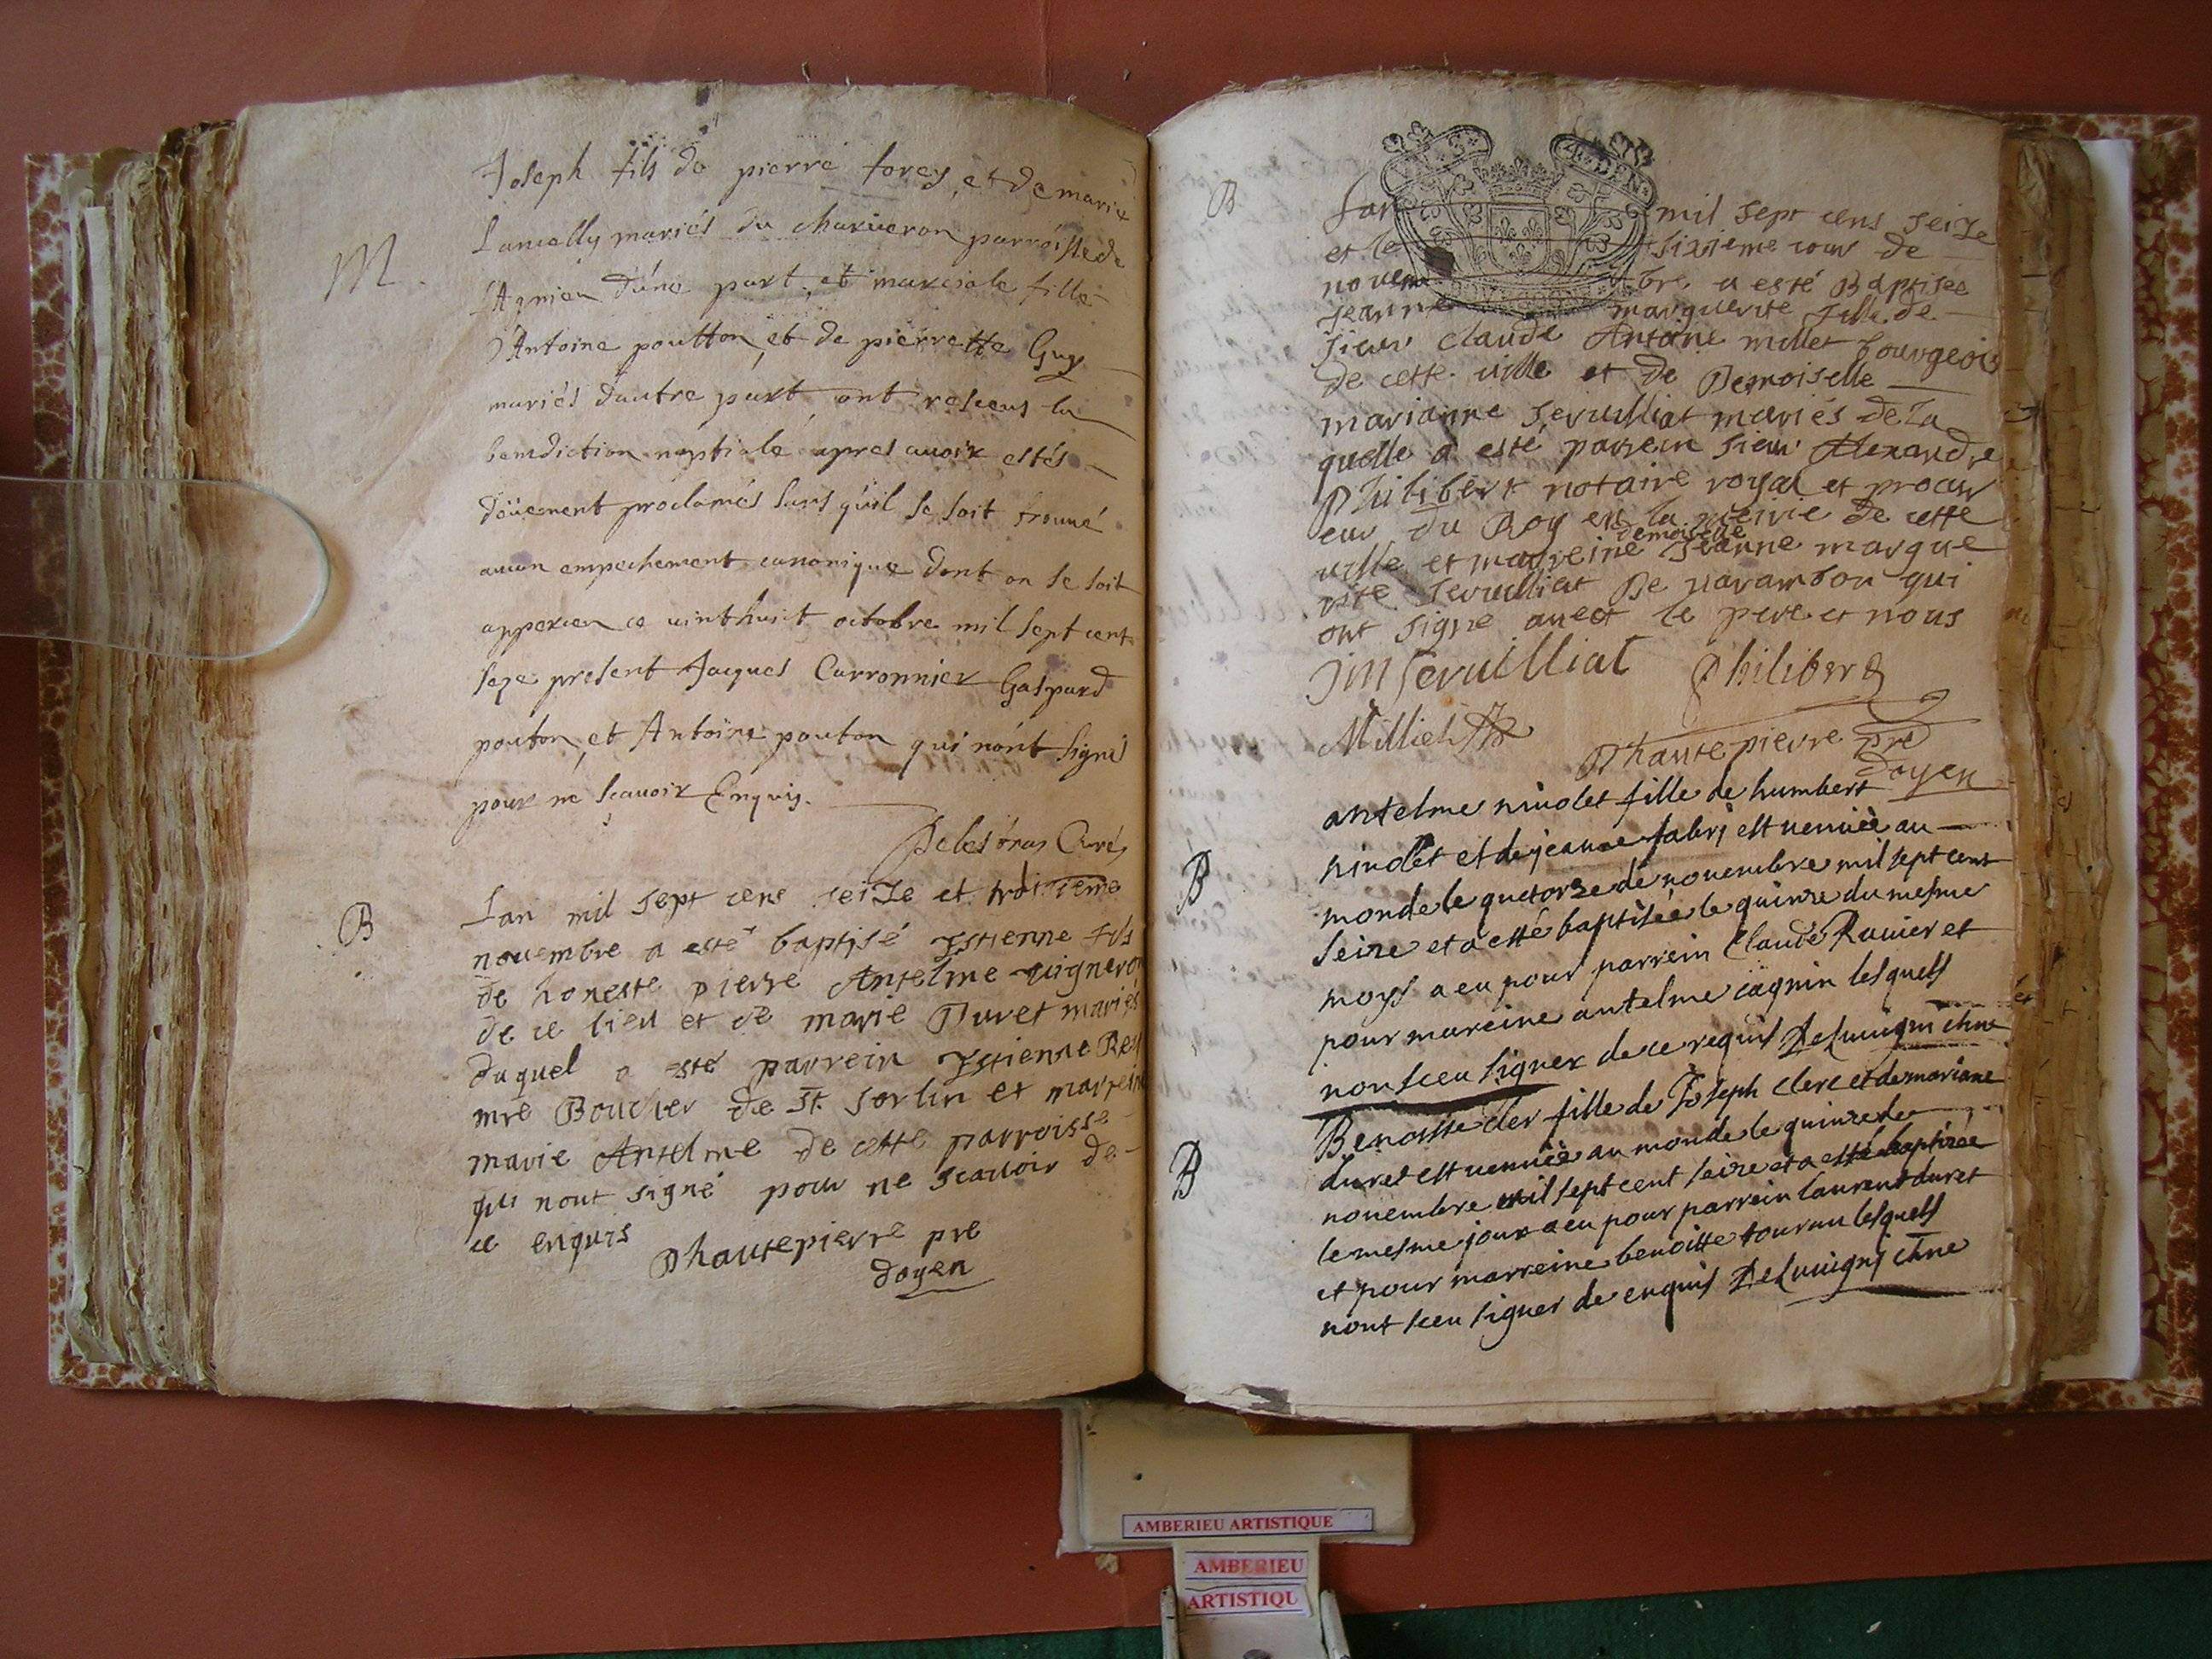 Joseph fils de pierre forey, et de marie
Lamelly mariés du charueron parroisse de
Lagnieu d'úne part, et marciale fille
d'Antoine poutton, et de pierrette Guy
mariés d'autre part ont resceus la
benediction nuptiale apres auoir estés
doüement proclamés sans qu'il se soit trouué
aucun empechement canonique dont on se soit
apperceu ce uint huit octobre mil sept cent
seze present Jacques Carronnier Gaspard
pouton, et Antoine pouton qui n'ont signés
pour ne scauoir Enquis.
Curé
M.
B
Lan mil sept cens seize et troisieme
nouembre a esté baptisé Estienne fils
de honeste pierre Antelme uigneron
de ce lieu et de marie Duret mariés
duquel a esté parrein Estienne Rey
mre Boucher de St. Sorlin et marreine
marie Antelme de cette parroisse
qui nont signé pour ne scauoir de
ce enquis Dhautepierre pre
doyen
B
Lan mil sept cens seize
et le sixieme iour de
nouembre a esté Baptisee
Jeanne marguerite fille de
Sieur Claude Antoine millet bourgeois
de cette uille et de Demoiselle
marianne Seruilliat mariés de la
quelle a esté parrein Sieur Alexandre
Philibert notaire royal et procur
eur du Roy en la meirie de cette
uille et marreine demoiselle Jeanne margue
rite Seruilliat De uarambon qui
ont signe auect le pere et nous
JM Seruilliat Philibert
Milliet
Dhautepierre pre
doyen
B
antelme niuolet fille de humbert
niuolet et de jeanne fabri est uenuië au
monde le quatorze de nouembre mil sept cent
seize et a esté baptisée le quinze du mesme
moys a eu pour parrein Claude Rauier et
pour mareine antelme cagnin lesquels
nont sceu signer de ce requis Deluuigni chne
B
Benoitte cler fille de Joseph clerc et de mariane
duret est uenuië au monde le quinze de
nouembre mil sept cent seize et a esté baptizée
le mesme jour a eu pour parrein laurent duret
et pour marreine benoitte touran lesquels
nont sceu signer de enquis Deluuigni chne
AMBERIEU ARTISTIQUE
AMBERIEU
ARTISTIQU